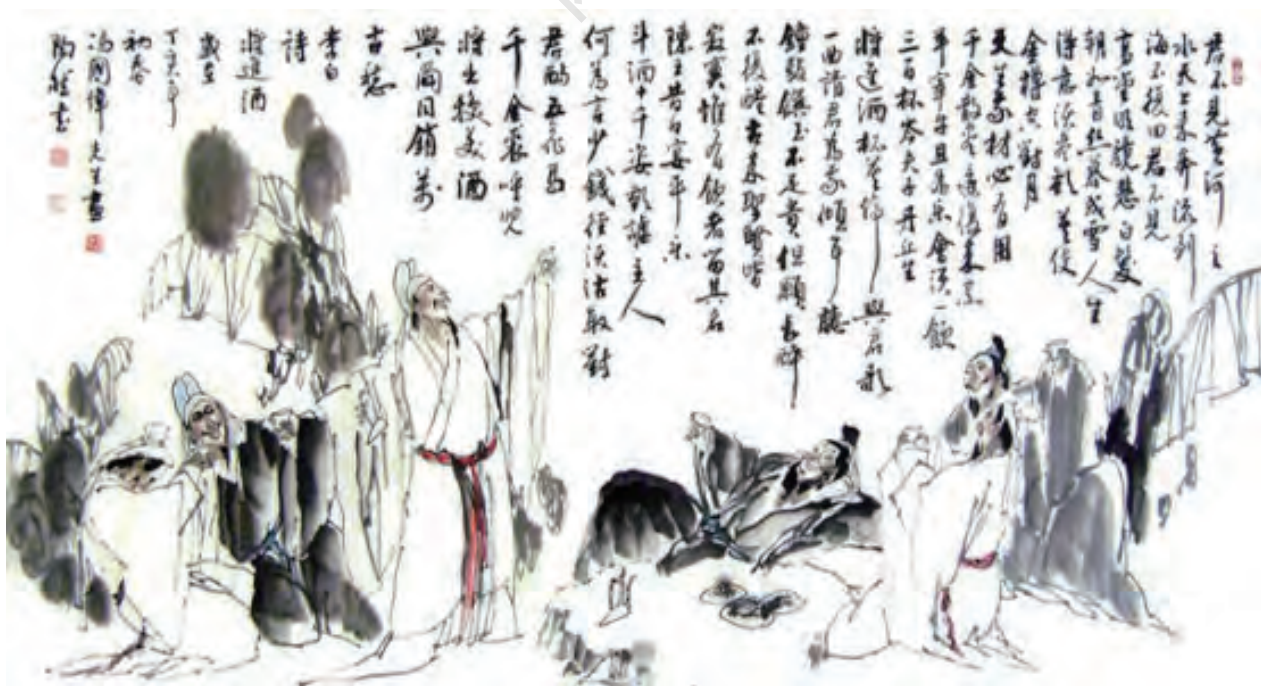 君不見黃河之
水天上來奔流到
海不復回君不見
高堂明鏡悲白髮
朝如青絲暮成雪人生
得意須盡歡莫使
金樽空對月
天生我材必有用
千金散盡還復來烹
羊宰牛且為樂會須一飲
三百杯岑夫子丹丘生
將進酒杯莫停與君歌
一曲請君為我傾耳聽
鐘鼓饌玉不足貴但願長醉
不復醒古來聖賢皆
寂寞惟有飲者留其名
陳王昔日宴平樂
斗酒十千恣歡謔主人
何為言少錢徑須沽取對
君酌五花馬
千金裘呼兒
將出換美酒
與爾同銷萬
古愁
李白
詩
將進酒
歲在
丁亥年
初春
馮國偉先生畫
書